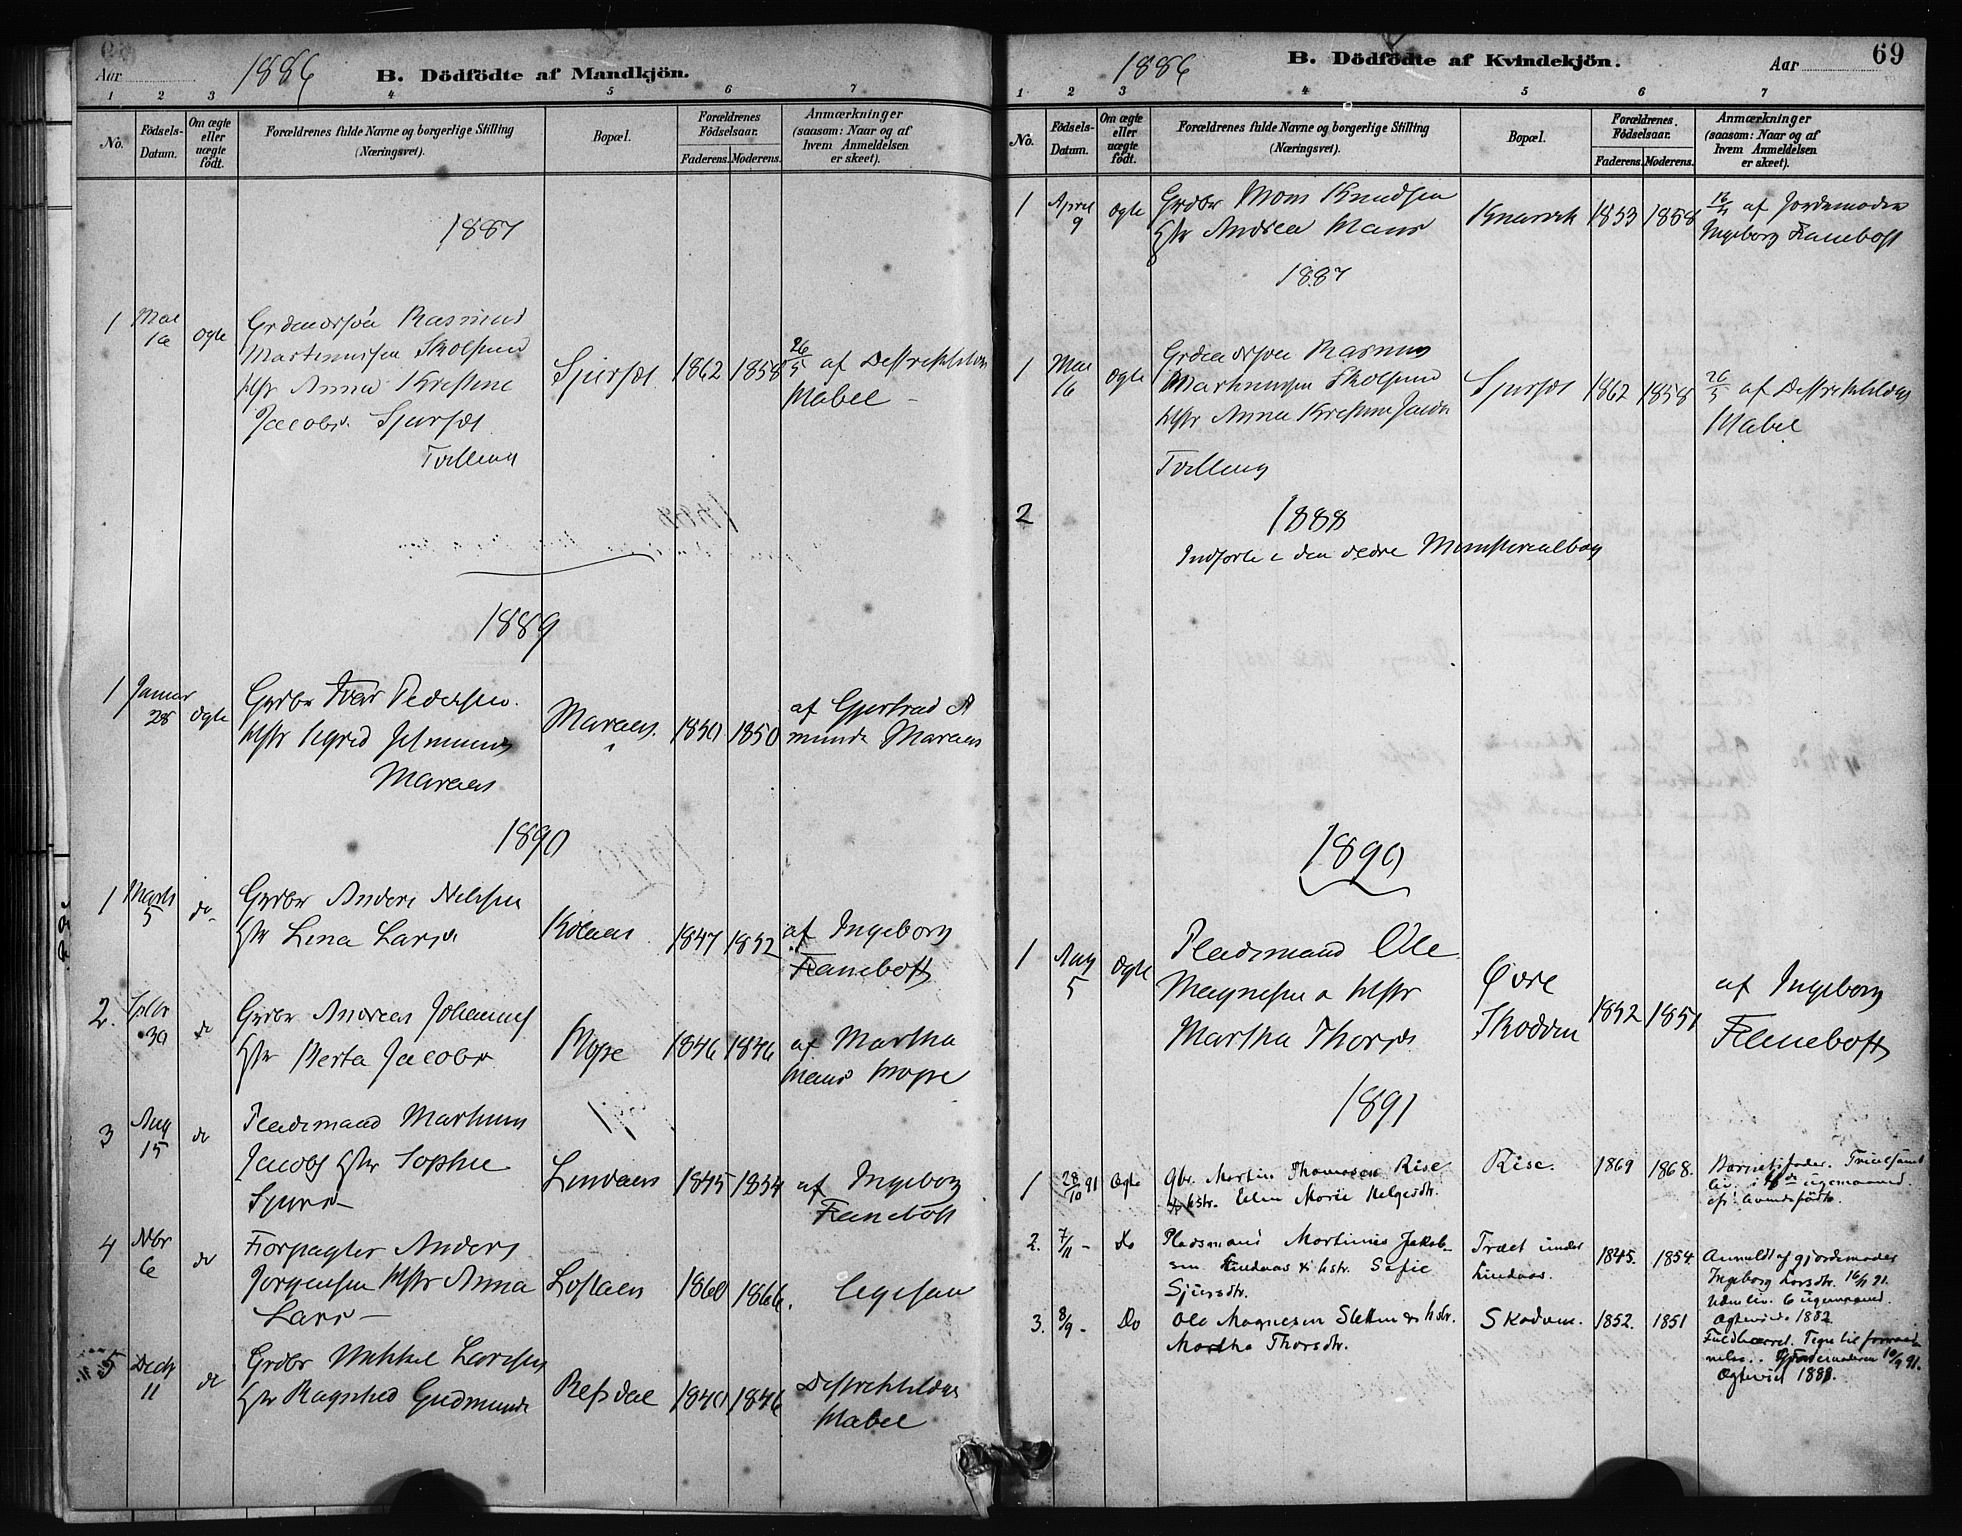 Aar 1886 B. Dödfödte af Mandkjön.
1 2 3 4 5 6 7
No.
Födsels-Datum.
Om ægte eller uægte födt.
Forældrenes fulde Navne og borgerlige Stilling
(Næringsvei).
Bopæl.
Forældrenes Födselsaar.
Faderens. Moderens.
Anmærkninger
(saasom: Naar og af
hvem Anmeldelsen
er skeet).
1887
1 Mai 16 ægte
Grdmandssøn Rasmus
Martinussen Skolsund
Hstr Anna Kristine
Jacobs.
Tvilling
1862 1858
26/5 af Distriktslæge
Mabel
1889
1 Januar 28 ægte
Grdbr Ivar Pedersen
Maraas
1850 1850
af Gjertrud
Maraas
1890
1 Marts 5 do
Grdbr Anders Nilssen
Hstr Lina Lars
Kolaas
1847 1852
af Ingeborg
Fanebost
2. 30 do
Grdbr Andreas Johannes
Hstr Berta Jacobs
1846 1846
af Martha
3 Aug 15 do
Pladsmand Martinus
Jacobs Hstr Sophie
Sjurs
Lindaas
1845 1854
af Ingeborg
Fanebost
4 Nbr 6 do
Forpagter Anders
Jørgensen Hstr Anna
Lars
Loftaas
1860 1866.
5 Decb 11 do
Grdbr Mikkel Larssen
Hstr Ragnhild Gudmunds
Refsdal
1840 1846
Distriktslæge
Mabel
1886 B. Dödfödte af Kvindekjön. Aar 69
1 2 3 4 5 6 7
No.
Födsels-Datum.
Om ægte eller uægte födt.
Forældrenes fulde Navne og borgerlige Stilling
(Næringsvei).
Bopæl.
Forældrenes Födselsaar.
Faderens. Moderens.
Anmærkninger
(saasom: Naar og af
hvem Anmeldelsen
er skeet).
1 April 9 ægte
Grdbr Mons Knudsen
Hstr Andrea Mons
Knarvik
1853 1858
af Jordemoder
Ingeborg Fanebost
1887
1 Mai 16 ægte
Grdmandssøn Rasmus
Martinussen Skolsund
Hstr Anna Kristine Jacobs
Tvilling
1862 1858
26/5 af Distriktslæge
Mabel
2
1888
Indførte i den ældre Ministerialbog
1890
1 Aug 5 ægte
Pladsmand Ole
Magnesen o Hstr
Martha Thorsd
Øvre
Skodven
1852 1851
af Ingeborg
Fanebost
1891
1 28/10 91 Ægte
Gbr. Martin Thomsen Rise
& hstr. Elen Marie Helgesdtr.
Rise.
1869 1868.
Barnets fader.
2. 7/11 - Do
Pladsmand Martinus Jakob-
sen Lindaas & hstr. Sofie
Sjursdtr.
Træet under
Lindaas.
1845. 1854.
Anmeldt af gjordemoder
Ingeborg Larsdtr. 16/11 91.
Uden liv. 6 ugemaaned.
Ægteviede 1882
3. 8/9 - Do
Ole Magnesen Sletten & hstr.
Martha Thorsdtr.
Skodven.
1852. 1851
Fuldbaaret. Tegn til forraad
nelse. Gjordemoderen 10/9 91.
Ægteviet 1888.